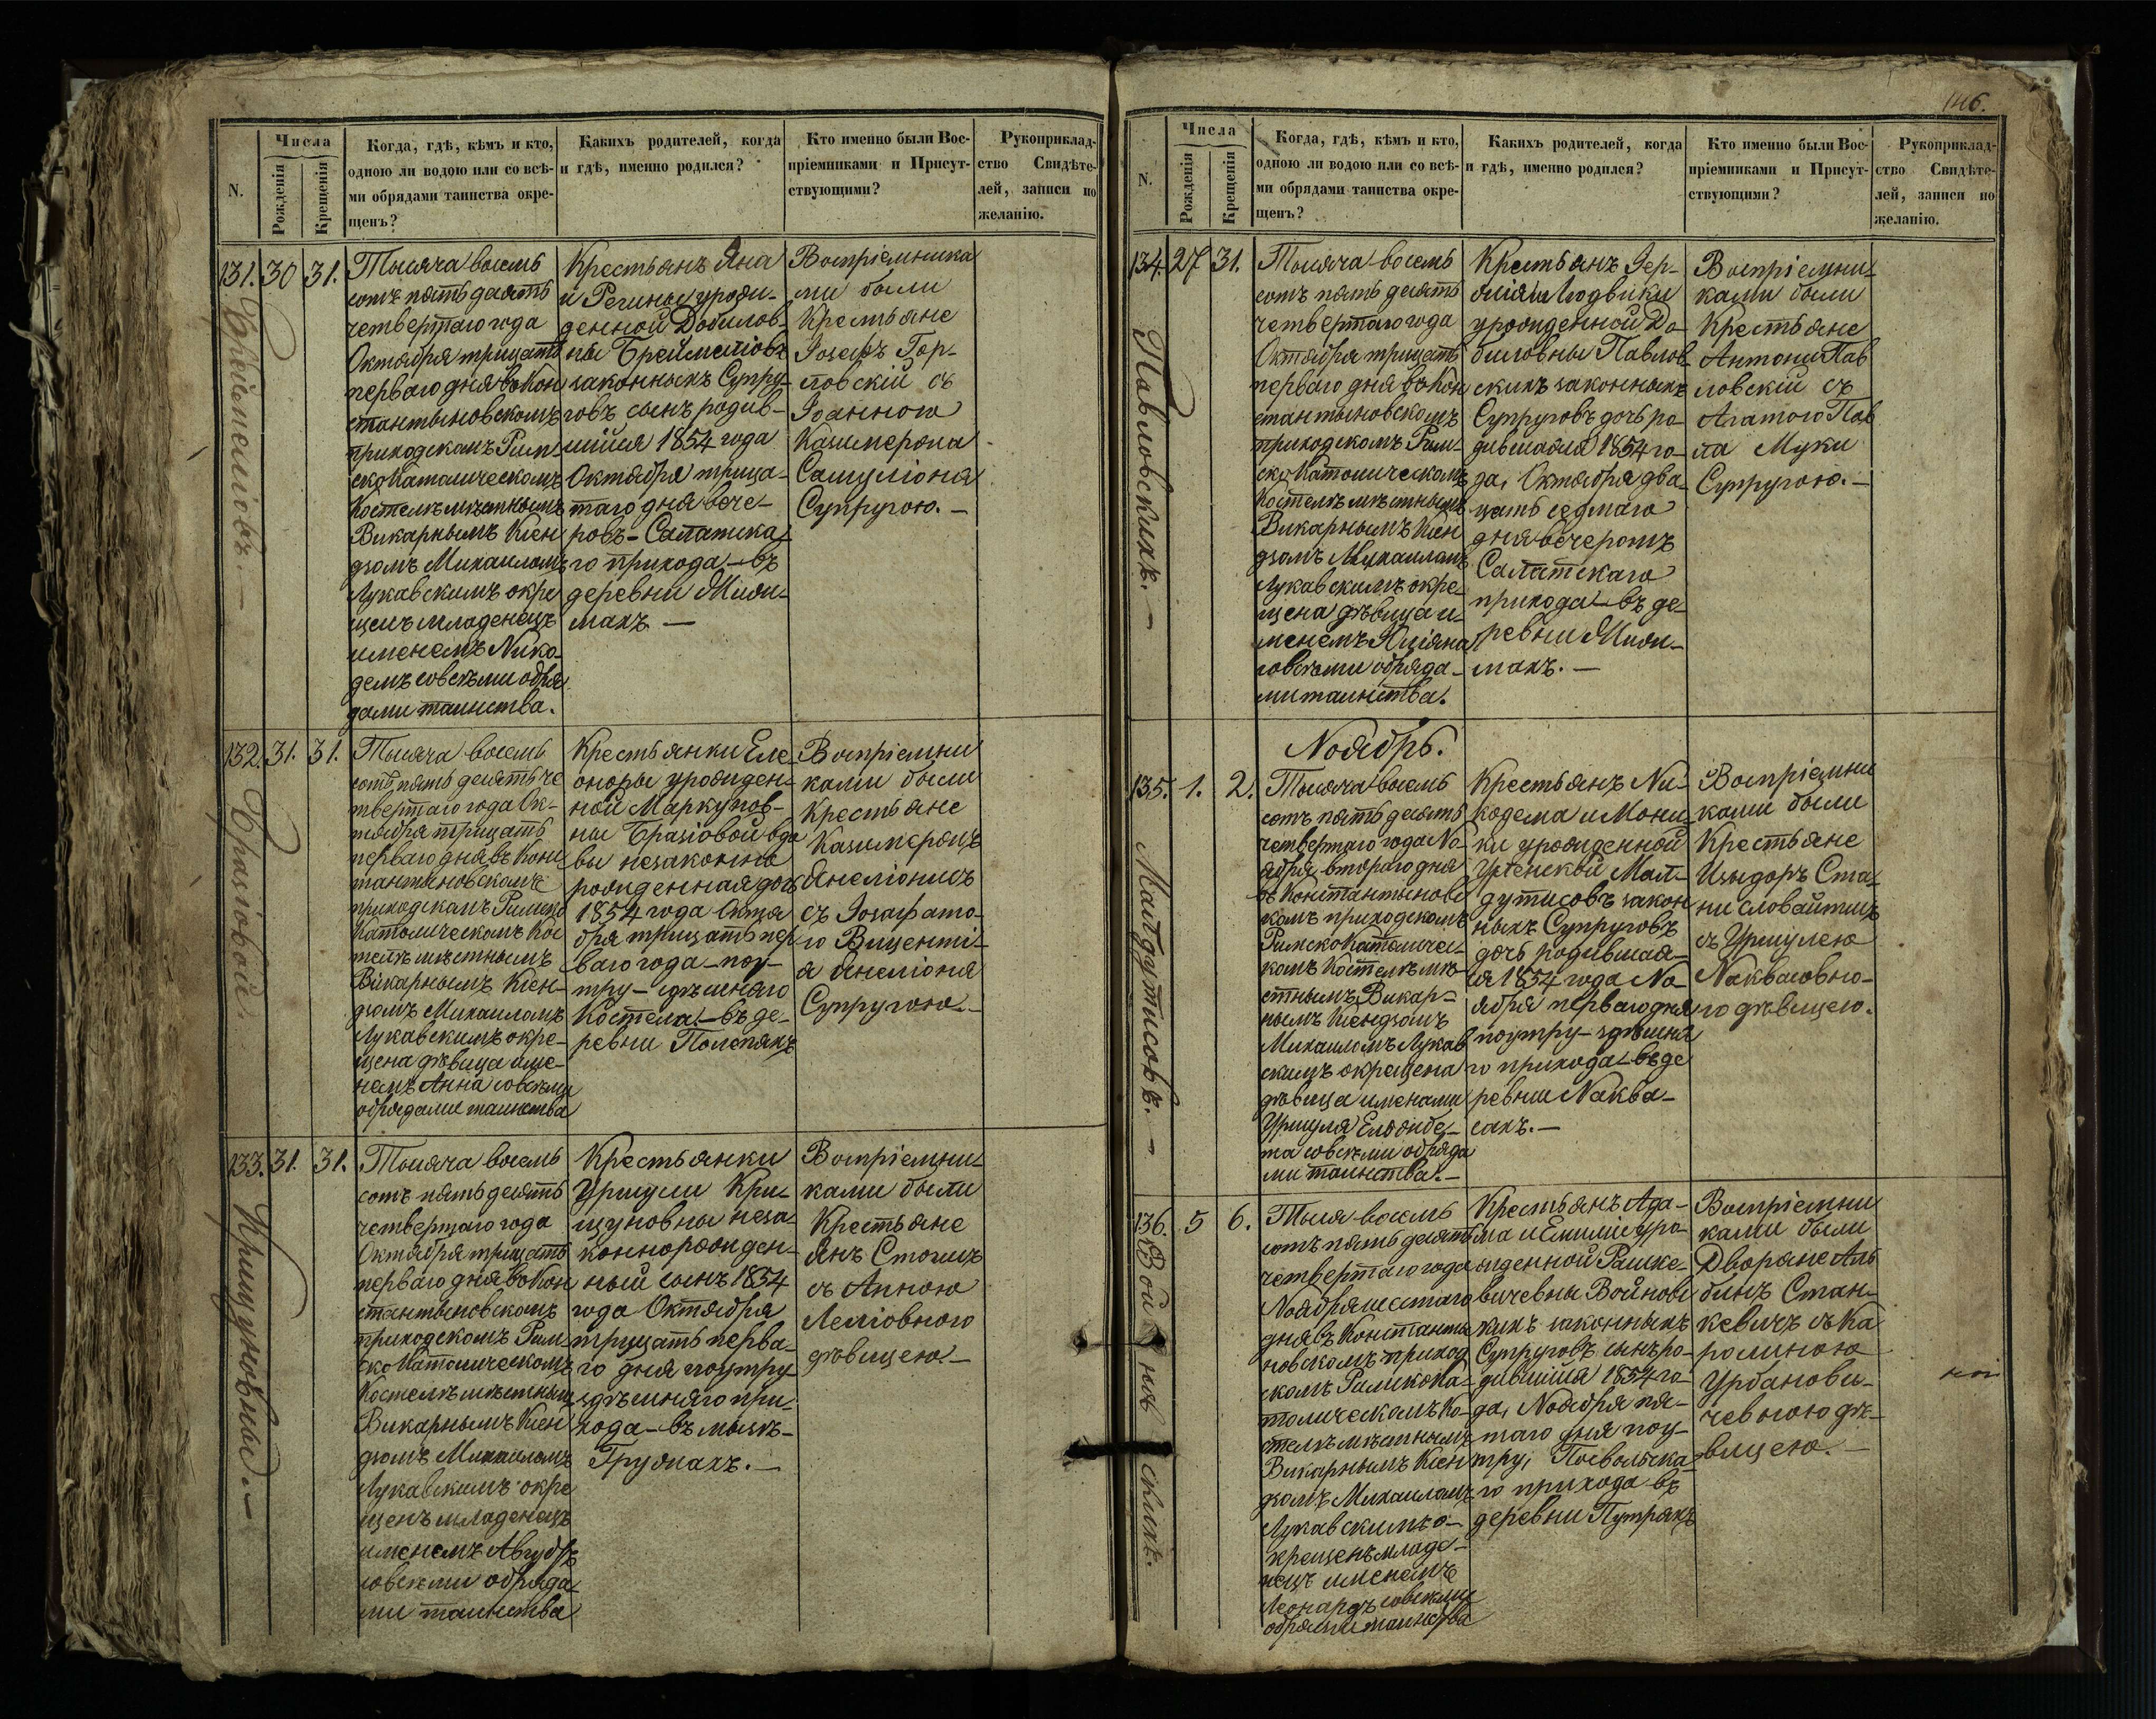 N.
Числа
Рожденія
Крещенія
Когда, гдѣ, кѣмъ и кто,
одною ли водою или со всѣ-
ми обрядами таинства окре-
щенъ?
Какихъ родителей, когда
и гдѣ, именно родился?
Кто именно были Вос-
пріемниками и Присут-
ствующими?
Рукоприклад-
ство Свидѣте-
лей, записи по
желанію.
131. 30 31.
Тысяча восемь
сотъ пять десятъ
четвертаго года
Октября тридцать
перваго дня во Кон
стантыновскомъ
приходскомъ Рим
ско Католическомъ
Костелѣ мѣстнымъ
Викарнымъ Ксен
дзомъ Михаиломъ
Лукавскимъ окре
щенъ младенецъ
именемъ Нико-
демъ со всѣми обря
дами таинства.
Крестьянъ Яна
и Регины урожи-
денной Добилов-
ны
законныхъ Супру-
говъ сынъ родив-
шійся 1854 года
Октября трица-
таго дня вече-
ровъ - Салатска
го прихода - въ
деревни Мижи-
махъ -
Воспріемника
ми были
Крестьяне
Іосифъ Гор-
ловскій съ
Іоанною
Казимерона
Самуліоня
Супругою. -
132. 31. 31.
Тысяча восемь
сотъ пять десять че
твертаго года Ок-
тября трицать
перваго дня въ Конс
тантыновскомъ
приходскомъ Римско
Католическомъ Кос
телѣ мѣстнымъ
Викарнымъ Ксен-
дзомъ Михаиломъ
Лукавскимъ окре-
щена дѣвица име-
немъ Анна со всѣми
обрядами таинства
Крестьянки Еле-
оноры урожден-
ной Маркунов-
ны Бразіовой вдо
вы незаконно
рожденная дочь
1854 года Октя
бря трицать пер
ваго года - поу-
тру - здѣшняго
Костела - въ де-
ревни Полепяхъ
Воспріемни
ками были
Крестьяне
Казимеронъ
Янеліонисъ
съ Іозафато-
ю Виценті-
я Янеліоня
Супругою -
133. 31. 31.
Тысяча восемь
сотъ пять десять
четвертаго года
Октября трицать
перваго дня во Кон
стантыновскомъ
приходскомъ Рим
ско Католическомъ
Костелѣ мѣстнымъ
Викарнымъ Ксен
дзомъ Михаиломъ
Лукавскимъ окре
щенъ младенецъ
именемъ
со всѣми обряда
ми таинства
Крестьянки
Уршули Кри-
щуновны неза-
коннорожден-
ный сынъ 1854
года Октября
трицать перва-
го дня поутру
здѣшняго при-
хода - въ мызѣ -
Грузжахъ. -
Воспріемни-
ками были
Крестьяне
Янъ Стошкъ
съ Анною
Лелловною
дѣвицею. -
Крищуновны. -
146.
N.
Числа
Рожденія
Крещенія
Когда, гдѣ, кѣмъ и кто,
одною ли водою или со всѣ-
ми обрядами таинства окре-
щенъ?
Какихъ родителей, когда
и гдѣ, именно родился?
Кто именно были Вос-
пріемниками и Присут-
ствующими?
Рукоприклад-
ство Свидѣте-
лей, записи по
желанію.
134. 27 31.
Павловскихъ. -
Тысяча восемь
сотъ пять десятъ
четвертаго года
Октября трицать
перваго дня во Кон
стантыновскомъ
приходскомъ Рим-
ско Католическомъ
Костелѣ мѣстнымъ
Викарнымъ Ксен
дзомъ Михаиломъ
Лукавскимъ окре-
щена дѣвица и-
менемъ Юліяна
со всѣми обряда-
ми таинства.
Крестьянъ
и Людвики
урожденной До-
биловны Павлов-
скихъ законныхъ
Супруговъ дочь ро-
дившаяся 1854 го-
да, Октября два-
цать седмаго
дня вечеромъ
Салатскаго
прихода - въ де-
ревни Мижи-
махъ. -
Воспріемни-
ками были
Крестьяне
Антони Пав
ловскій съ
Агатою Пав
ла Муки
Супругою. -
Ноябрь.
135. 1. 2.
Малдутисовъ. -
Тысяча восемь
сотъ пять десятъ
четвертаго года Но-
ября втораго дня
въ Константынов
скомъ приходскомъ
Римско Католичес-
комъ Костелѣ мѣ-
стнымъ Викар-
нымъ Ксендзомъ
Михаиломъ Лукав
скимъ окрещена
дѣвица именами
Уршуля Елжбе-
та со всѣми обряда
ми таинства. -
Крестьянъ Ни-
кодема и Мони-
ки урожденной
Мал-
дутисовъ закон
ныхъ Супруговъ
дочь родившая-
ся 1854 года Но-
ября перваго дня
поутру - здѣшня
го прихода - въ де
ревни Наква-
сахъ. -
Воспріемни
ками были
Крестьяне
Изыдоръ Ста-
ниславайтись
съ Уршулею
Наквасовно-
ю дѣвицею.
136. 5 6.
Войновскихъ.
Тысяча восемь
сотъ пять десять
четвертаго года
Ноября шестаго
дня въ Константы
новскомъ приход
скомъ Римскока-
толическомъ Ко-
стелѣ мѣстнымъ
Викарнымъ Ксен
дзомъ Михаиломъ
Лукавскимъ о-
крещенъ младе-
нецъ именемъ
Леонардъ со всѣми
обрядами таинства
Крестьянъ Ада-
ма и Емиліи уро-
жденной Рашке-
вичевны Войновс
кихъ законныхъ
Супруговъ сынъ ро-
дившійся 1854 го-
да, Ноября пя-
таго дня поу-
тру, Посвольска-
го прихода въ
деревни Путряхъ
Воспріемни
ками были
Дворяне Аль
бинъ Стан-
кевичъ съ Ка
ролиною
Урбанови-
чевною дѣ-
вицею. -